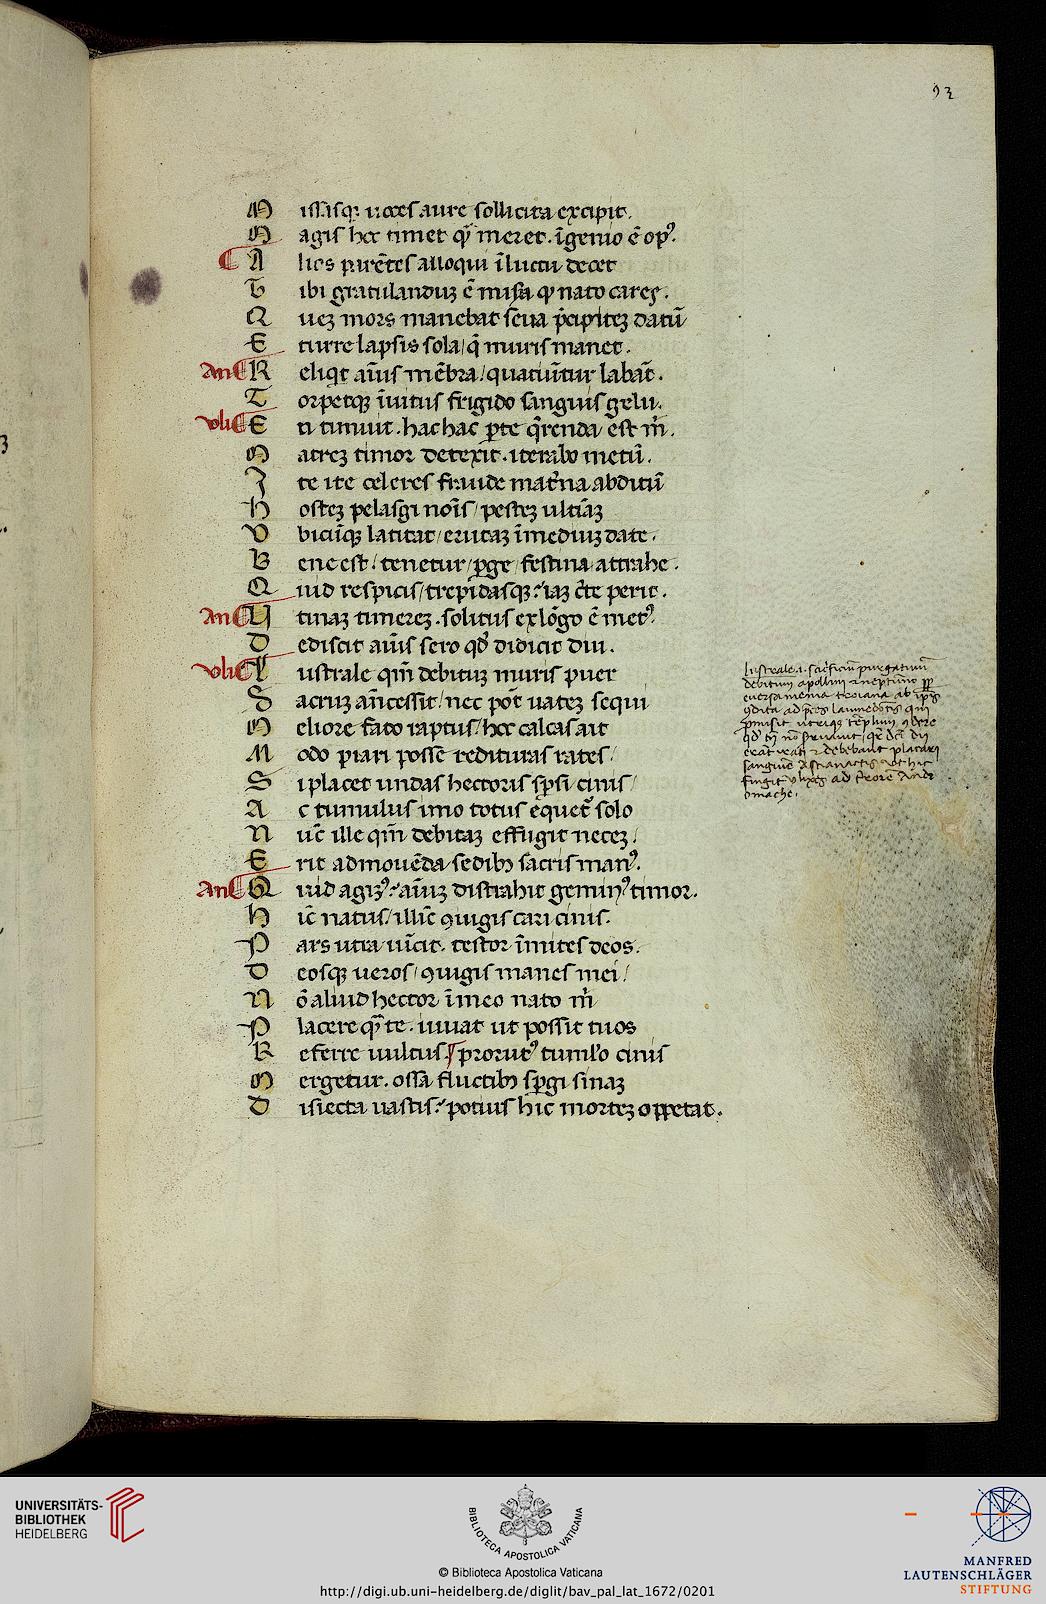 93
M issisq; uoces aure sollicita excipit.
M agis hec timet q̃ meret. ĩgenio ẽ opꝰ.
A lios parẽtes alloqui ĩ luctu decet
T ibi gratulanduz ẽ misera ꝙ nato cares.
Q uez mors manebat seua p̃cipitez datũ
E turre lapsis sola/ q̃ muris manet.
An R eliqt aĩus mẽbra/ quatiũtur labãt.
T orpetq; ĩuitus frigido sanguis gelu.
vli E ti timuit. hac hac ꝑte q̃renda est m̃.
M atrez timor detexit. iterabo metũ.
I te ite celeres fraude mat̃na abditũ
H ostez pelasgi noĩs/ pestez ultĩaz
V bicũq; latitat/ erutaz ĩ mediuz date.
B ene est/ tenetur/ ꝑge/ festina/ attrahe.
Q uid respicis/ trepidasq;? iaz c̃te perit.
An U tinaz timerez. solitus ex lõgo ẽ metꝰ.
D ediscit aĩus sero qđ didicit diu.
vli L ustrale qm̃ debituz muris puer
S acruz añcessit/ nec põt uatez sequi
M eliore fato raptus/ hec calcas ait
M odo piari posse redituras rates/
S i placet undas hectoris sp̃si cinis/
A c tumulus imo totus equet̃ solo
N ũc ille qm̃ debitaz effugit necez/
E rit admouẽda sedibꝫ sacris manꝰ.
An Q uid agimꝰ? aĩuz distrahit geminꝰ timor.
H ic̃ natus/ illĩc ↄiugis cari cinis.
P ars utra uĩcit. testor ĩmites deos.
D eosq; ueros/ ↄiugis manes mei/
N õ aliud hector ĩ meo nato m̃
P lacere q̃ te. uiuat ut possit tuos
R eferre uultus. prorutꝰ tumulo cinis
M ergetur. ossa fluctibꝫ sp̃gi sinaz
D isiecta uastis? potius hic mortez oppetat.
lustrale .i. sac̃ficiũ purgatiuũ
debitum apollini ⁊ neptũno pp̃
euersa menia troiana ab ip̃is
ↄdita ad p̃ces laumedõtis qui
promisit utriq; tẽplum ↄdere
qđ tñ nõ seruauit/ q̃re dc̃i dii
erãt irati ⁊ debebant placari
sanguine Astianactis ut hic
fingit vlixes ad terorẽ Andr
omache.
UNIVERSITÄTS-
BIBLIOTHEK
HEIDELBERG
BIBLIOTECA APOSTOLICA VATICANA
© Biblioteca Apostolica Vaticana
http://digi.ub.uni-heidelberg.de/diglit/bav_pal_lat_1672/0201
MANFRED
LAUTENSCHLÄGER
STIFTUNG